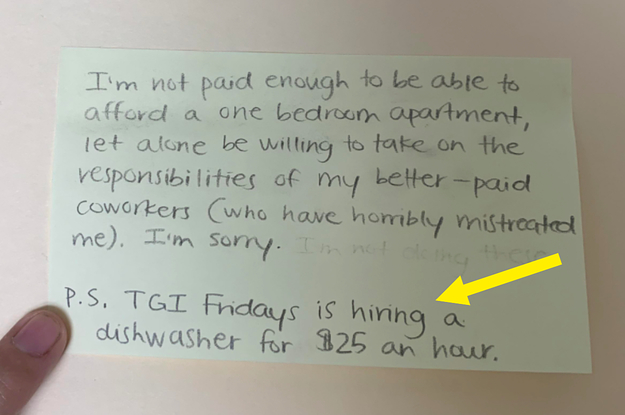 I'm not paid enough to be able to
afford a one bedroom apartment,
let alone be willing to take on the
responsibilities of my better-paid
coworkers (who have horribly mistreated
me). I'm sorry. I'm not doing these
P.S. TGI Fridays is hiring a
dishwasher for $25 an hour.